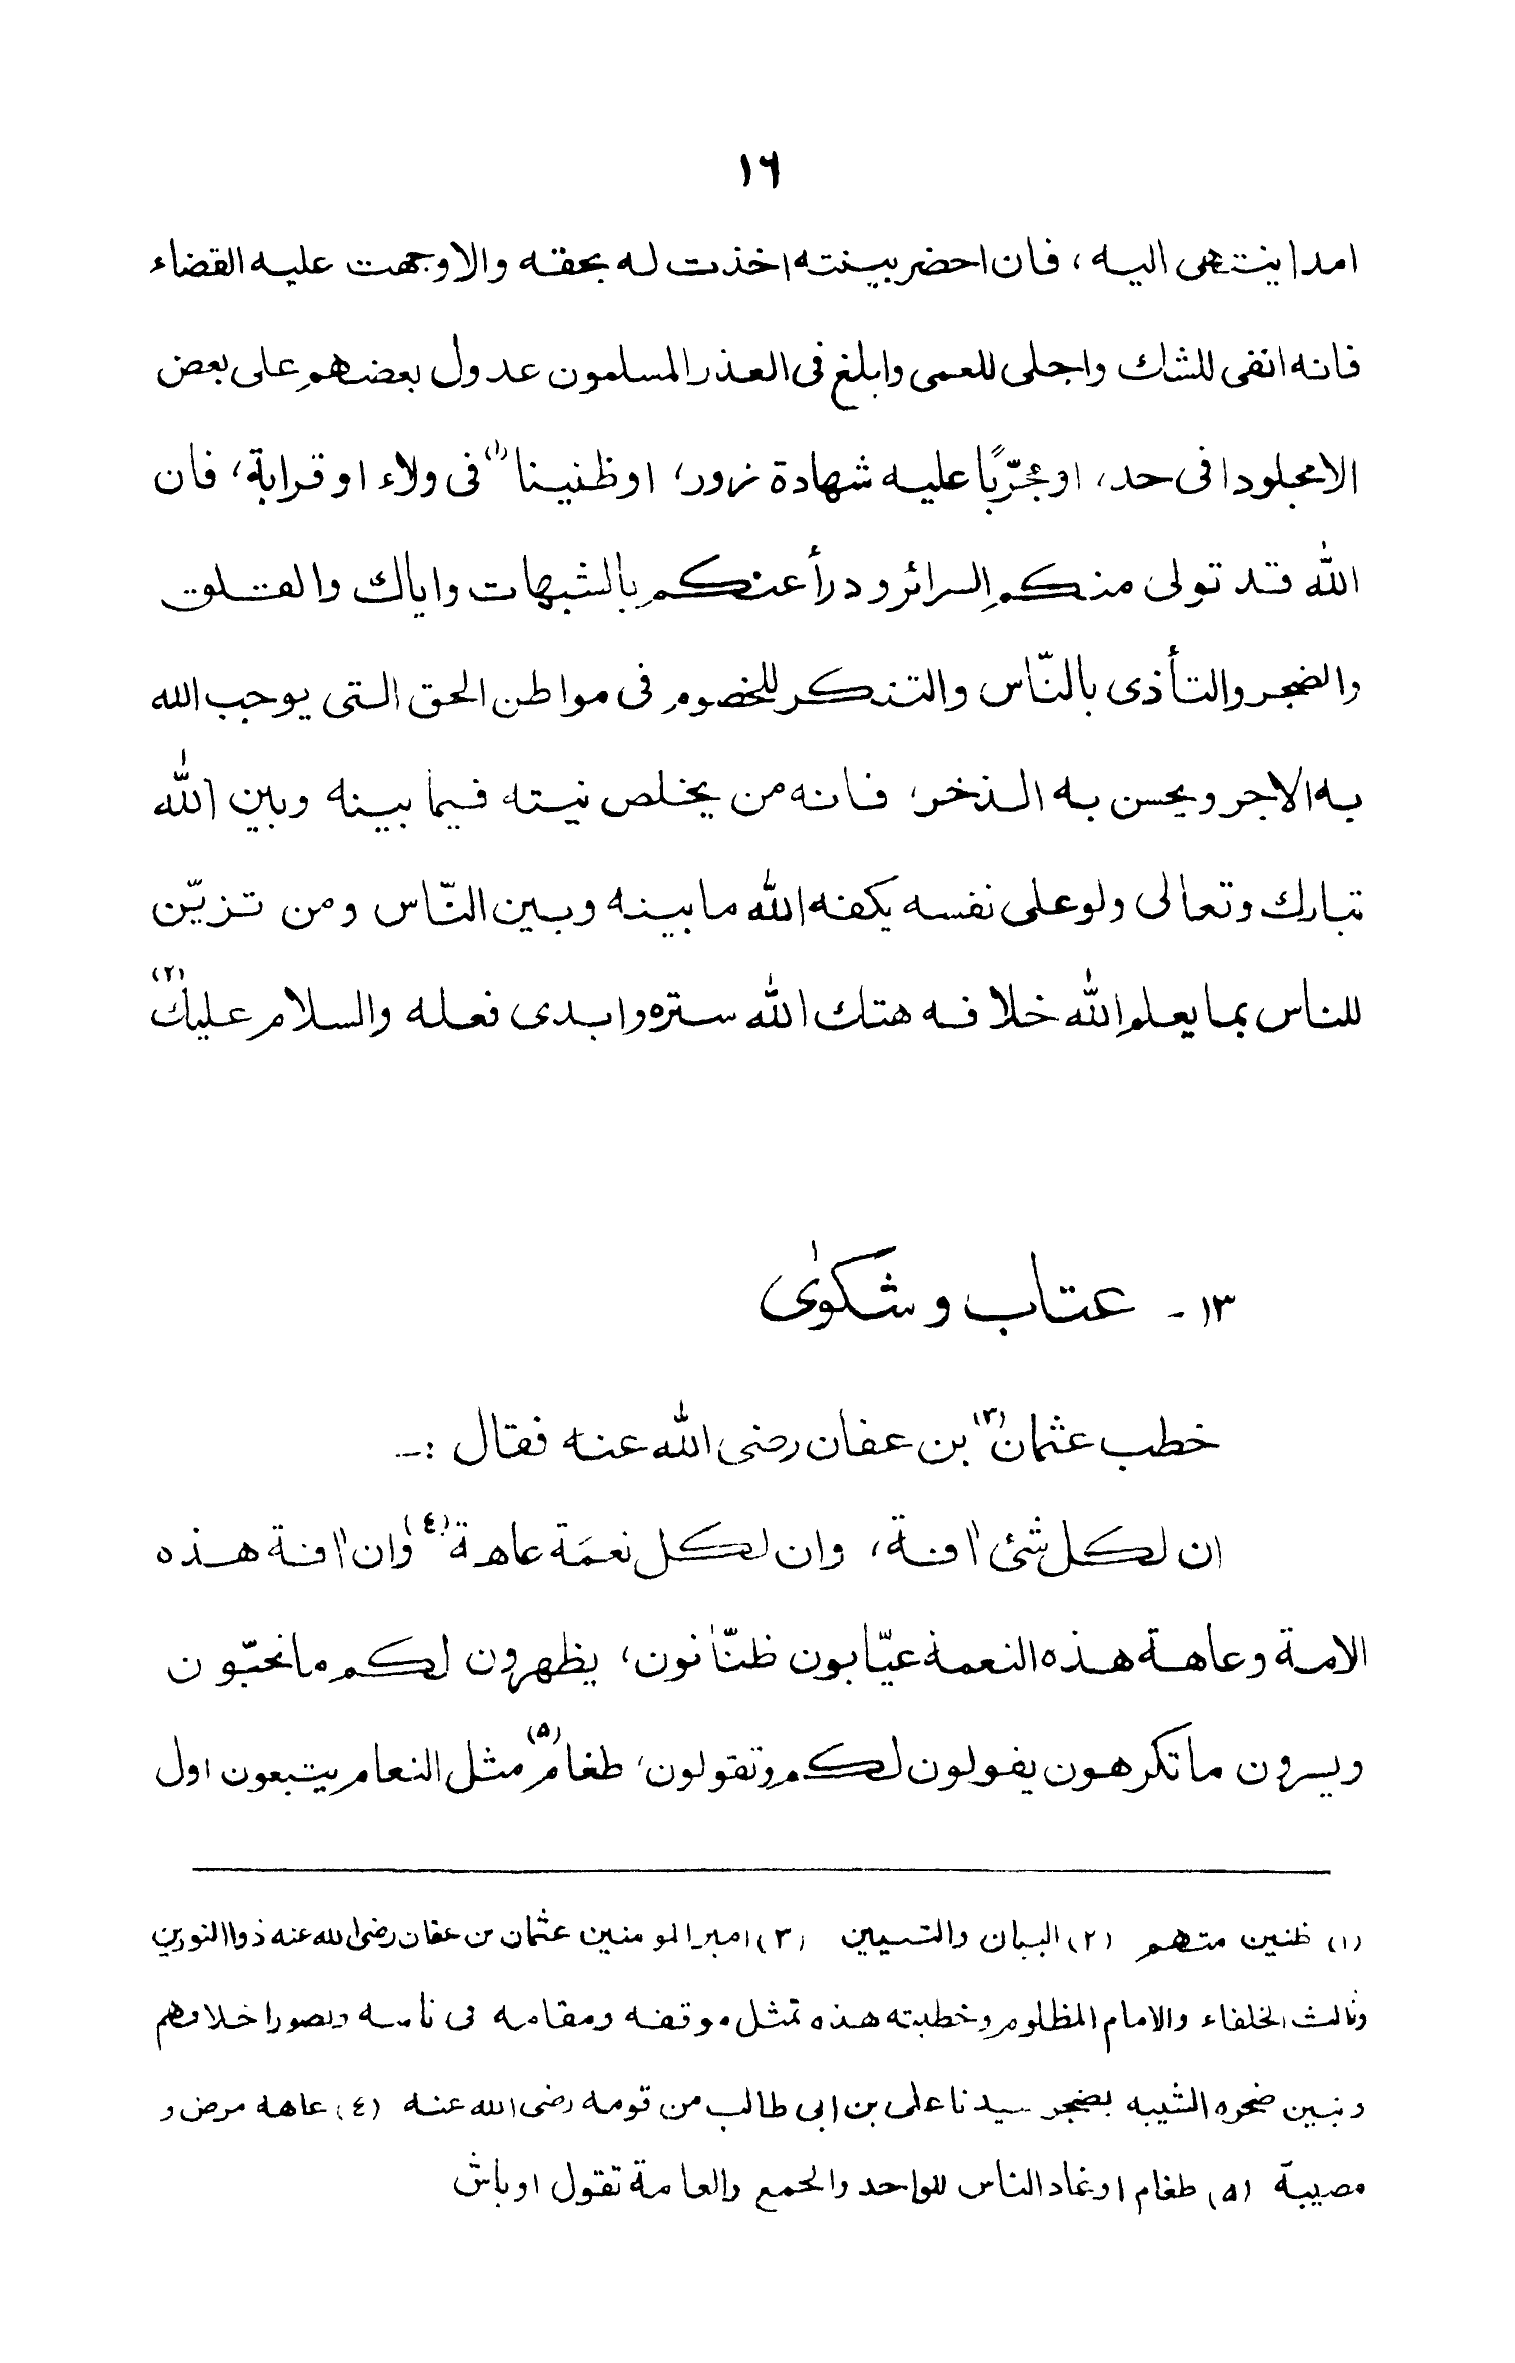 ١٦
امدا ينتهى اليه ، فان احضر بينته اخذت له بحقه والا وجهت عليه القضاء
فانه انفى للشك واجلى للعمى وابلغ فى العذر المسلمون عدول بعضهم على بعض
الا مجلودا فى حد، او مجرّبًا عليه شهادة زور، او ظنينا (١) فى ولاء او قرابة، فان
الله قد تولى منكم السرائر ودرأ عنكم بالشبهات واياك والقلق
والضجر والتأذى بالنّاس والتنكر للخصوم فى مواطن الحق التى يوجب الله
به الاجر ويحسن به الذخر، فانه من يخلص نيته فيما بينه وبين الله
تبارك وتعالى ولو على نفسه يكفه الله ما بينه وبين النّاس ومن تزيّن
للناس بما يعلم الله خلافه هتك الله ستره وابدى فعله والسلام عليك (٢)
١٣ - عتاب وشكوىٰ
خطب عثمان (٣) بن عفان رضى الله عنه فقال :ـ
ان لكل شئ اٰفة، وان لكل نعمَة عاهة (٤) وان اٰفة هذه
الامة وعاهة هذه النعمة عيّابون ظنّانون، يظهرون لكم ما تحبّون
ويسرون ما تكرهون يقولون لكم وتقولون، طغام (٥) مثل النعام يتبعون اول
(١) ظنين متهم (٢) البيان والتبيين (٣) امير المومنين عثمان بن عفان رضى الله عنه ذوا النورين
وثالث الخلفاء والامام المظلوم وخطبته هذه تمثل موقفه ومقامه فى ناسه وتصور اخلاقهم
وتبين ضجره الشبيه بضجر سيدنا على بن ابى طالب من قومه رضى الله عنه (٤) عاهة مرض و
مصيبة (٥) طغام اوغاد الناس للواحد والجمع والعامة تقول اوباش